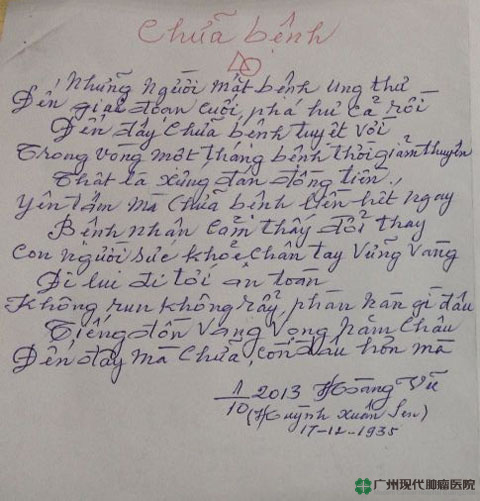 Chữa bệnh
Những Người mắt bệnh ung thư
Đến giai đoạn cuối, phá hư cả rồi
Đến đây chữa bệnh tuyệt vời
Trong vòng một tháng bệnh thời giảm thuyên
Thật là xứng đán đồng tiền!
Yên tâm mà chữa bệnh liền hết ngay
Bệnh nhân cảm thấy đổi thay
Con người sức khoẻ, chân tay vững vàng
Đi lui đi tới an toàn
Không run không rẩy, phàn nàn gì đâu
Tiếng đồn vang vọng năm châu
Đến đây mà chữa, còn đâu hơn mà
1/10 2013 Hoàng Vũ
(Huỳnh Xuân Sen)
17-12-1935
广州现代肿瘤医院